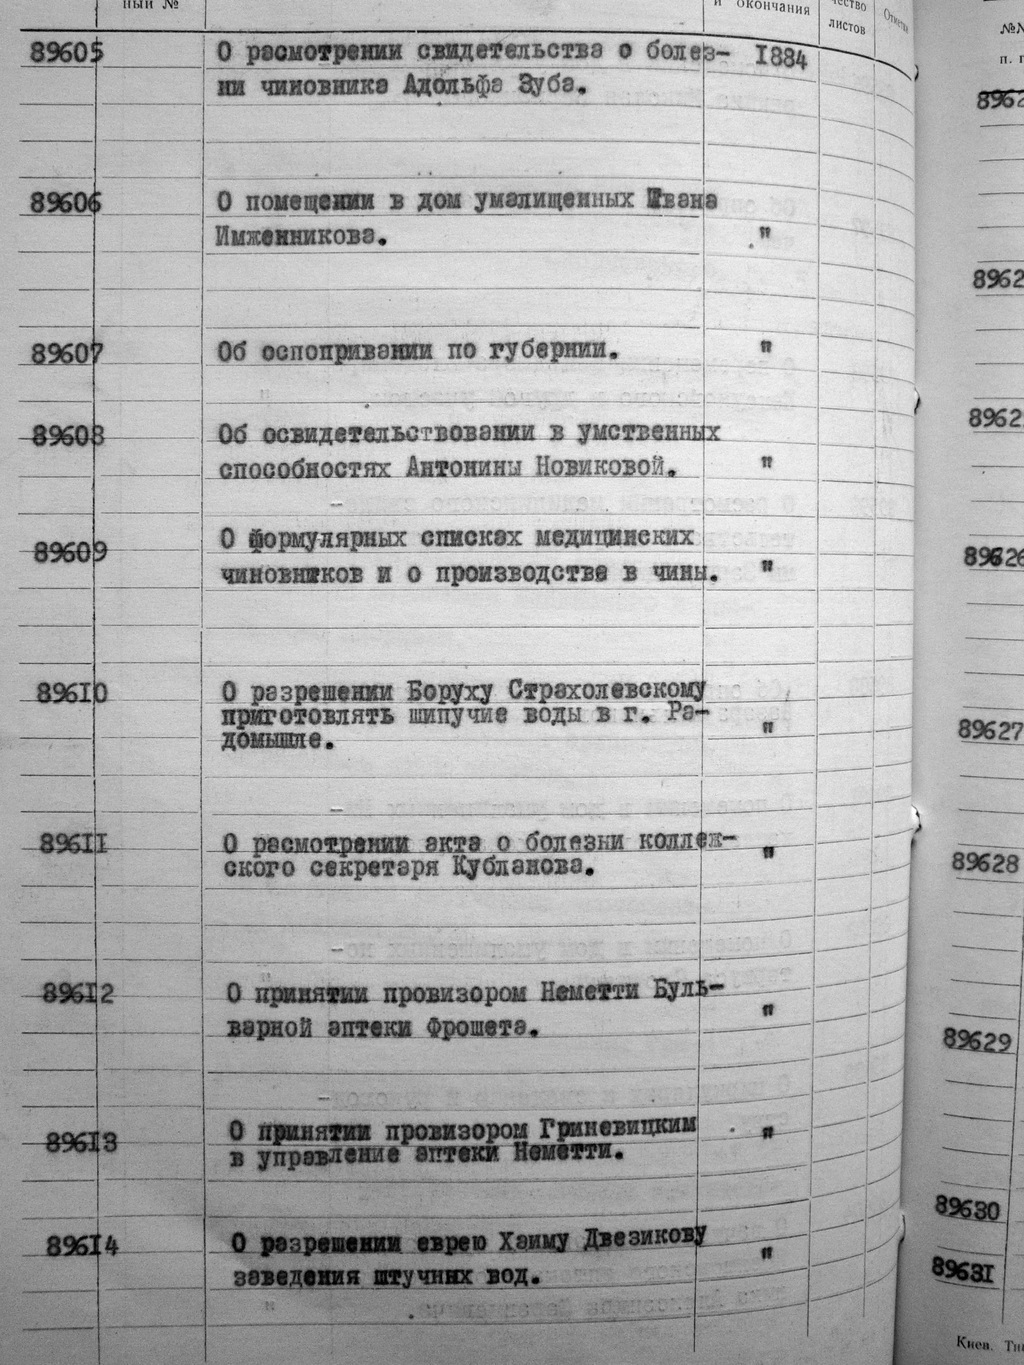 ный № и окончания чество
листов
Отметка
89605 О расмотрении свидетельства о болез- 1884
ни чиновника Адольфа Зуба.
89606 О помещении в дом умалищенных Ивана
Имженникова. "
89607 Об оспопривании по губернии. "
89608 Об освидетельствовании в умственных
способностях Антонины Новиковой. "
89609 О формулярных списках медицинских
чиновников и о производстве в чины. "
89610 О разрешении Боруху Страхолевскому
приготовлять шипучие воды в г. Ра- "
домышле.
89611 О расмотрении акта о болезни коллеж- "
ского секретаря Кубланова.
89612 О принятии провизором Неметти Буль- "
варной аптеки Фрошета.
89613 О принятии провизором Гриневицким "
в управление аптеки Неметти.
89614 О разрешении еврею Хаиму Двезикову "
заведения штучних вод.
№№
п. п
8962
8962
8962
89626
89627
89628
89629
89630
89631
Киев.